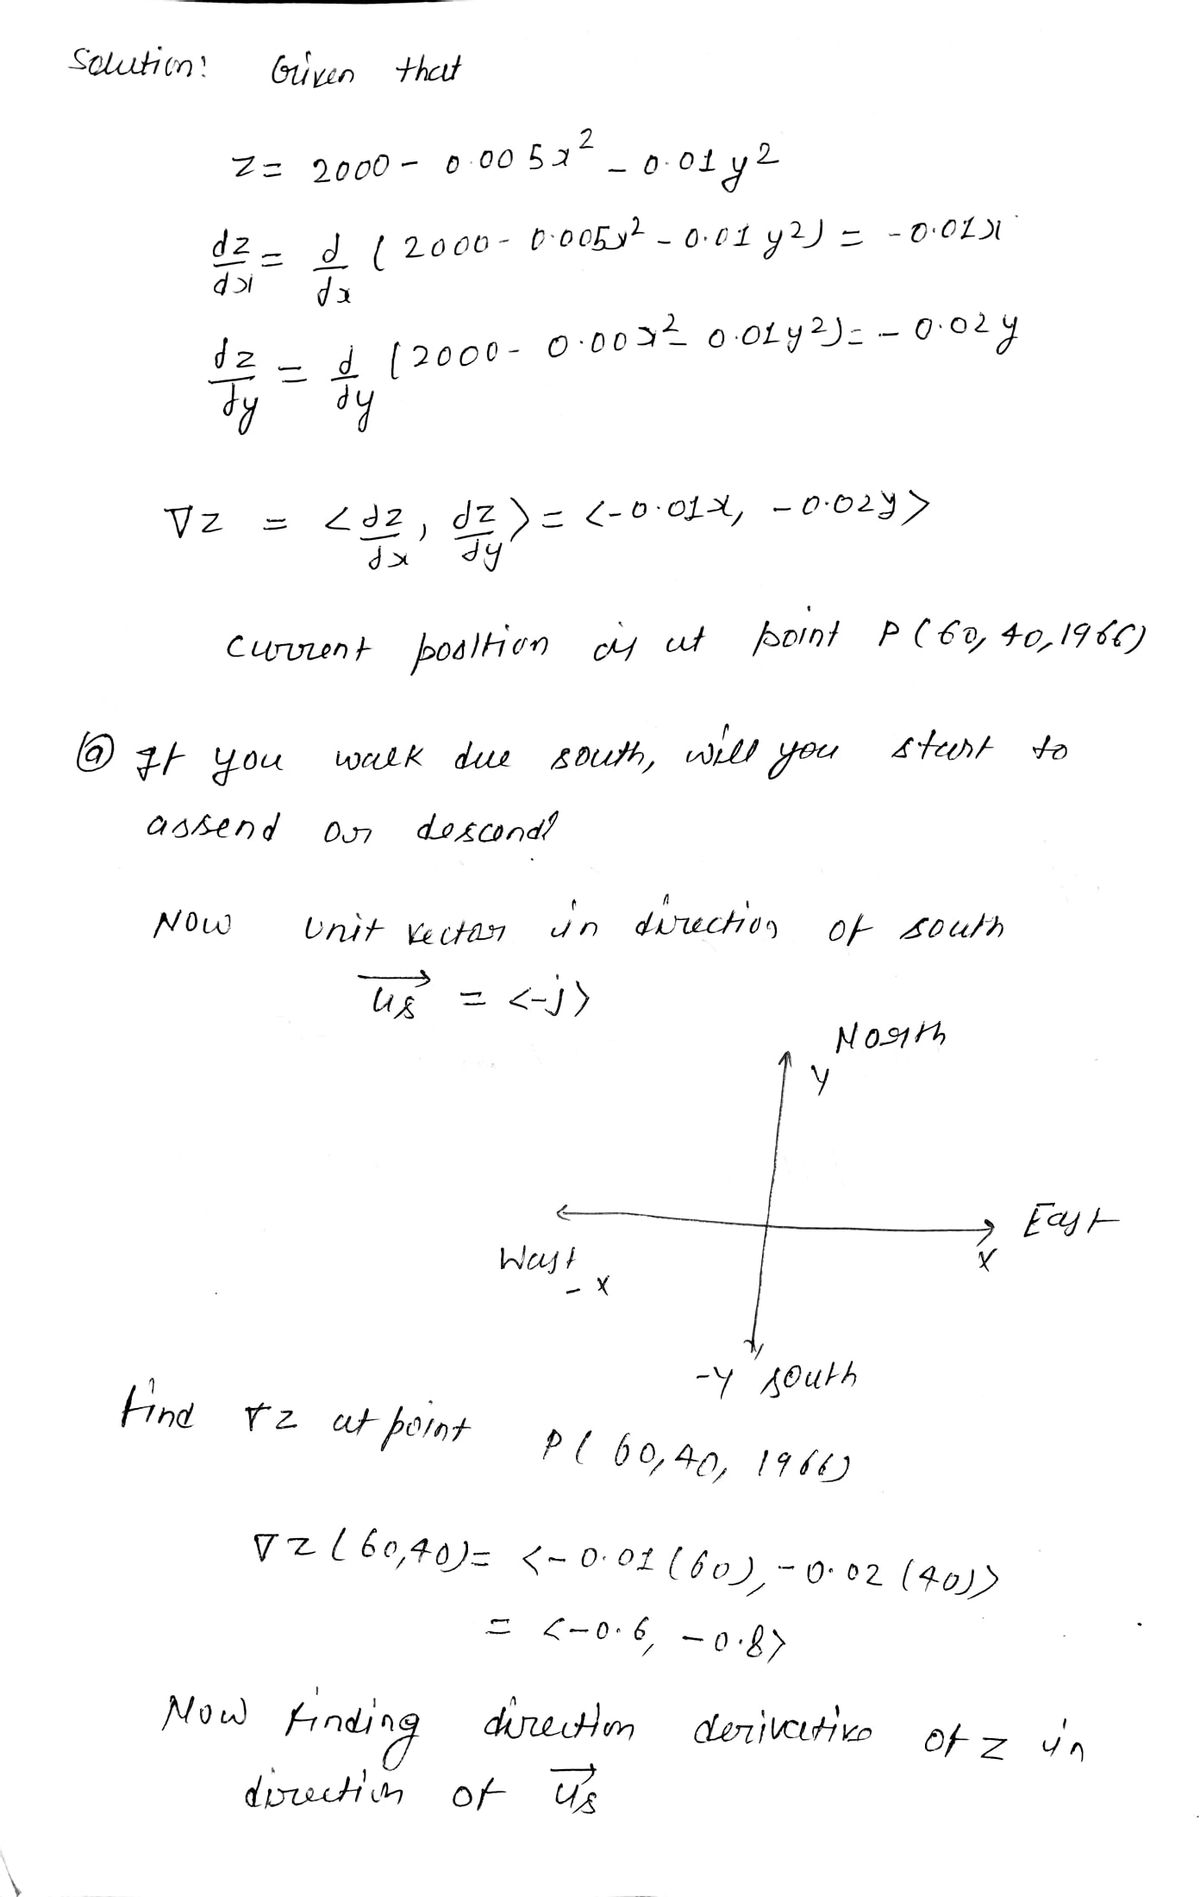 Solution: Given that
z = 2000 - 0.005x² - 0.01y²
dz/dx = d/dx (2000 - 0.005x² - 0.01y²) = -0.01x
dz/dy = d/dy (2000 - 0.00x² 0.01y²) = -0.02y
∇z = <dz/dx, dz/dy> = <-0.01x, -0.02y>
current position is at point P(60, 40, 1966)
(a) If you walk due south, will you start to
assend or descend?
Now unit vector in direction of south
→us = <-j>
North
y
East
x
West
-x
-y south
find ∇z at point P(60, 40, 1966)
∇z(60,40) = <-0.01(60), -0.02(40)>
= <-0.6, -0.8>
Now finding direction derivative of z in
direction of →us